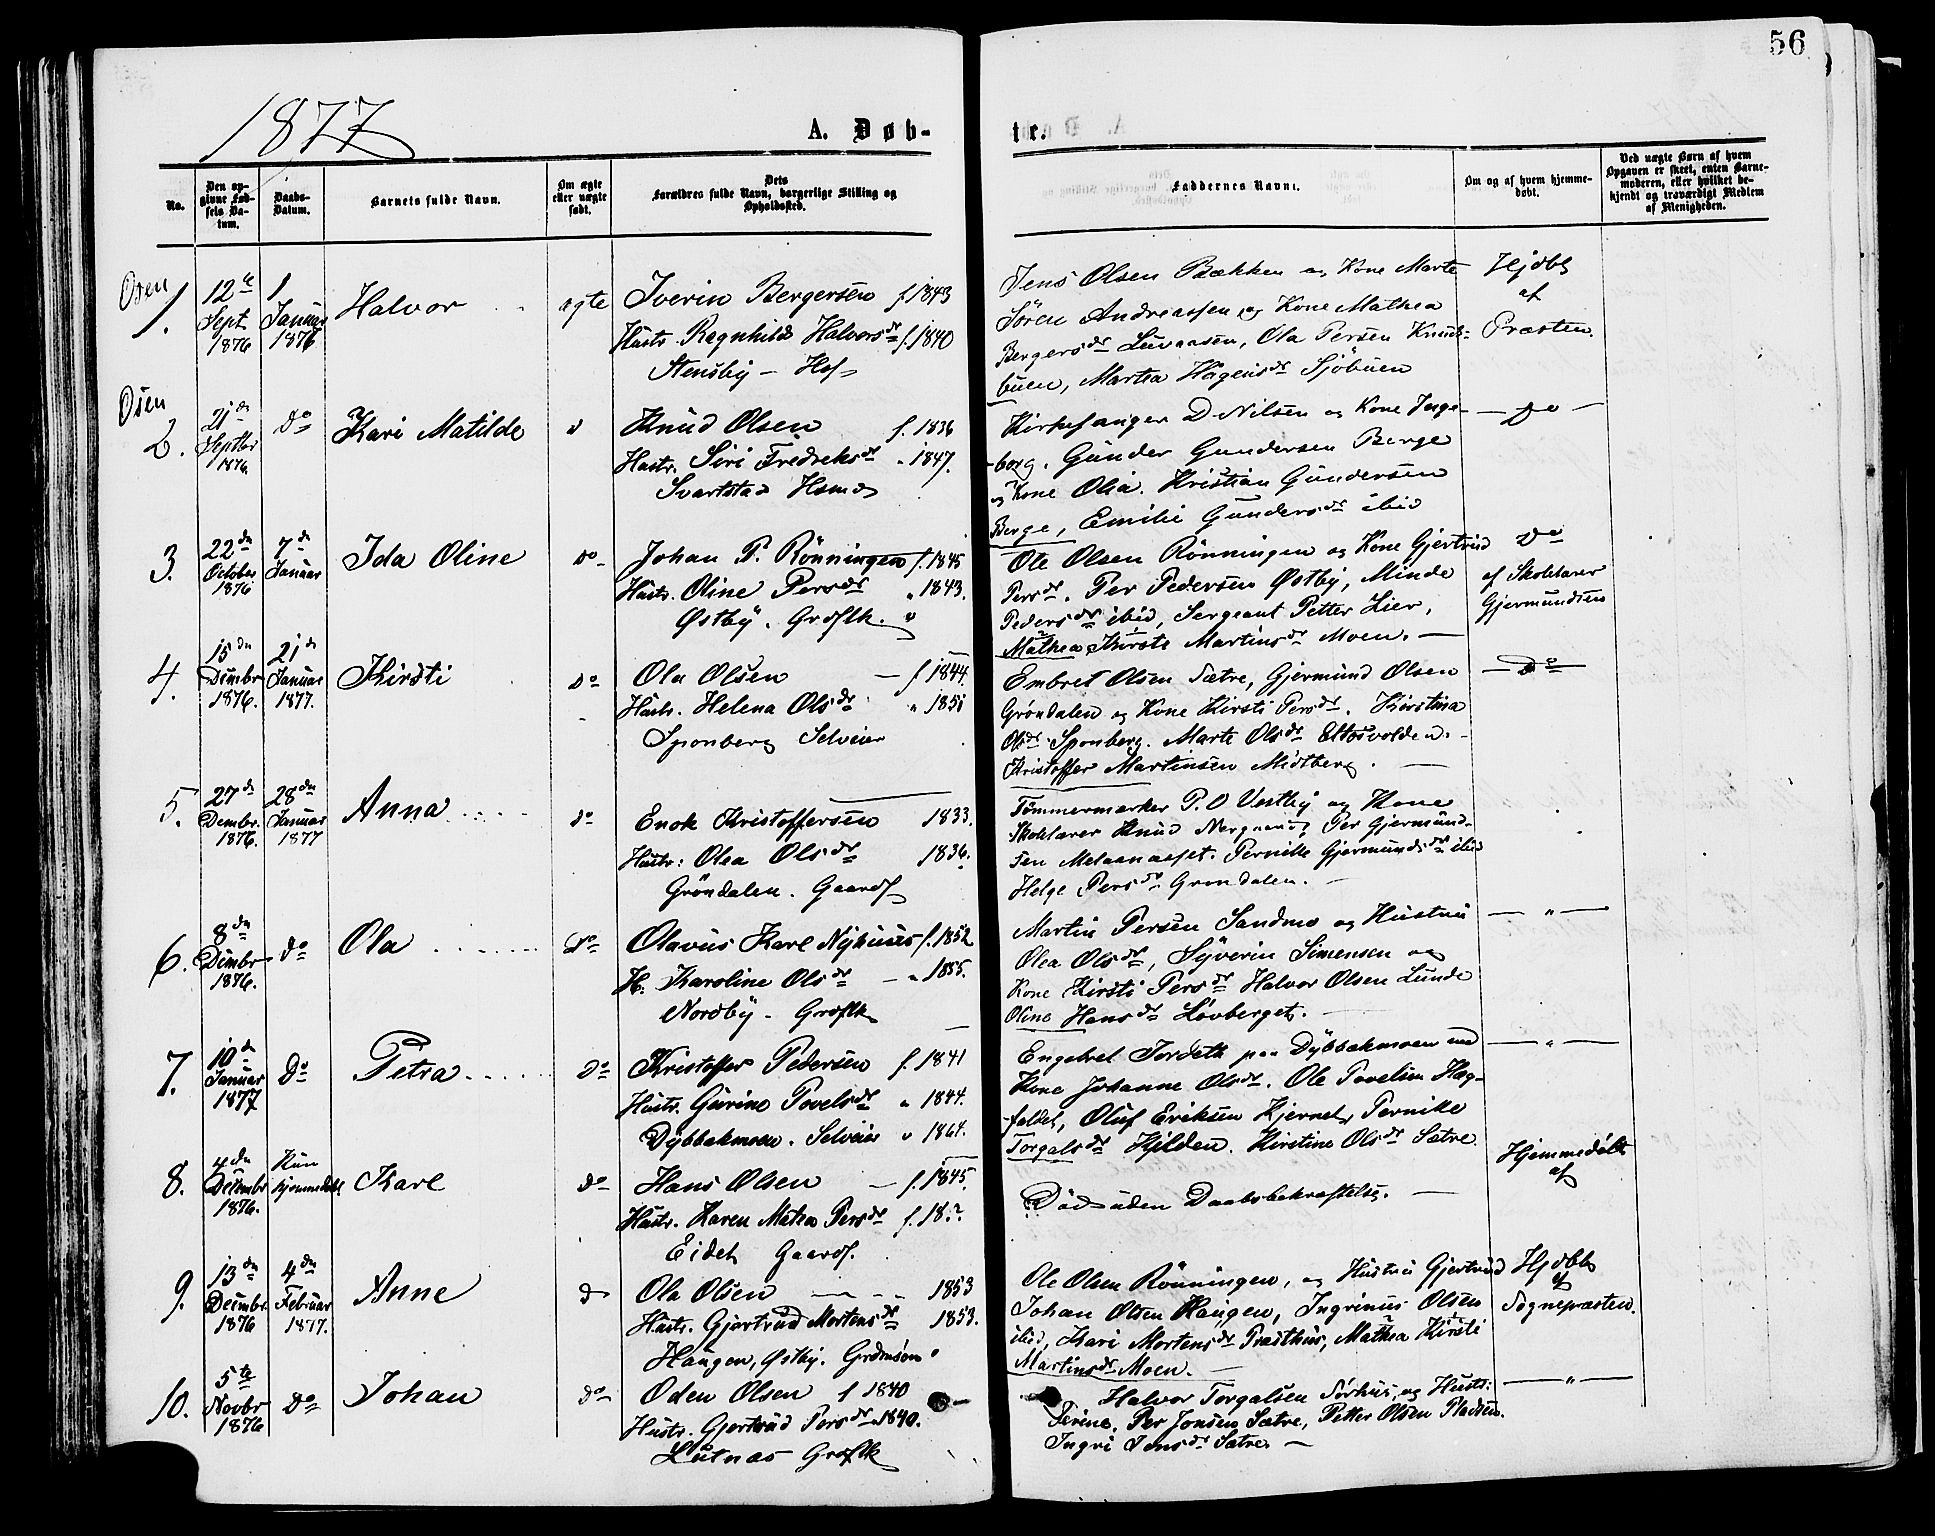 56
1877
A. Døb-
tr.
No.
Den op-
givne Fød-
sels Da-
tum.
Daabs-
Datum.
Barnets fulde Navn.
Om ægte
eller uægte
født.
Dets
Forældres fulde Navn, borgerlige Stilling og
Opholdssted.
Faddernes Navne.
Om og af hvem hjemme-
døbt.
Ved uægte Børn af hvem
Opgaven er skeet, enten Barne-
moderen, eller hvilket be-
kjendt og troværdigt Medlem
af Menigheden.
Osen
1.
12te
Sept
1876
1
Januar
1876
Halvor
ægte
Iverin Bergersen f. 1843
Hustr. Ragnhild Halvorsdr f. 1840
Stensby - Hof
Jens Olsen Bækken og Kone Marte
Søren Andreassen og Kone Mathea
Bergersdr Luvaasen, Ola Persen Knud-
buen, Martea Hagensdr Sjøbuen
Hjdbt
af
Præsten.
Osen
2.
21de
Septbr
1876
Do
Kari Matilde
Knud Olsen f. 1836
Hustr. Siri Fredreksdr " 1847.
Svartstad
Kirkesanger D. Nilsen og Kone Inge-
borg. Gunder Gundersen Berge
og Kone Olia. Kristian Gundersen
Berge, Emilie Gundersdr ibid
Do
3.
22dn
October
1876
7de
Januar
Ida Oline
Do
Johan P. Rönningen f. 1845
Hustr. Oline Persdr " 1843.
Østby. Grdflk.
Ole Olsen Rönningen og Kone Gjertrud
Persdr. Per Pedersen Østby, Minde
Pedersdr ibid, Sergeant Petter Lier,
Mathea Kirsti Martinsdr Moen.
Do
af Skolelærer
Gjermundsen
4.
15dn
Decembr
1876.
21de
Januar
1877.
Kirsti
Do
Ola Olsen f 1844.
Hustr. Helena Olsdr " 1851
Sponberg Selveier
Embret Olsen Sætre, Gjermund Olsen
Gröndalen og Kone Kirsti Persdr. Kirstina
Olsdr Sponberg. Marte Olsdr
Kristoffer Martinsen Midtberg.
Do
5.
27de
Decembr.
1876.
28dn
Januar
1877
Anna
do
Enok Kristoffersen 1833.
Hustr: Olea Olsdr 1836.
Gröndalen. Gaardf
Tømmermærker P. O Vestby og Kone
Skolelærer Knud Per Gjermund-
sen Pernille Gjermundsdr ibid
Helge Persdr Grøndalen.
6.
8dn
Decmbr
1876.
do
Ola
Do
Olavus Karl Nyhuus f. 1852
H. Karoline Olsdr " 1855.
Nordby. Grdflk
Martin Persen Sandmo og Hustru
Olea Olsdr, Syverin Simensen og
Kone Kirsti Persdr Halvor Olsen Lunde
Oline Hansdr Lövberget.
"
7.
10de
Januar
1877
Do
Petra
Do
Kristoffer Pedersen f. 1841
Hustr. Gurine Povelsdr " 1844.
Dybbakmoen. Selveier " 1864.
Engebret Jordet paa Dybbakmoen med
Kone Johanne Olsdr. Ole Povelsen Hæg-
feldet, Oluf Eriksen Kjernet, Pernille
Torgalsdr Kjilden. Kirstine Olsdr Sætre
"
8.
4dn
Decembr
1876.
Kun
hjemmedøbt
Karl
do
Hans Olsen f. 1845.
Hustr. Karen Matea Persdr f. 18 ?
Eidet Gaardf.
Död uden Daabsbekræftelse.
Hjemmedöbt
af
9.
13dn
Decembr
1876
4dn
Februar
1877.
Anne
do
Ola Olsen 1853
Hustr. Gjertrud Mortensdr 1853.
Haugen, Østby. Grdmsøn
Ole Olsen Rönningen, og Hustru Gjertrud
Johan Olsen Haugen, Ingrinus Olsen
ibid, Kari Mortensdr Præsthus, Mathea Kirsti
Martinsdr Moen.
Hjdbt
af
Sognepræsten.
10.
5te
Novbr
1876
Do
Johan
do
Oden Olsen f 1840
Hustr. Gjertrud Persdr " 1840.
Lutnæs Grdflk
Halvor Torgalsen Sörhus, og Hustr:
Per Jonsen Sætre, Petter Olsen Pladsen.
Ingri Jonsdr Sætre
"